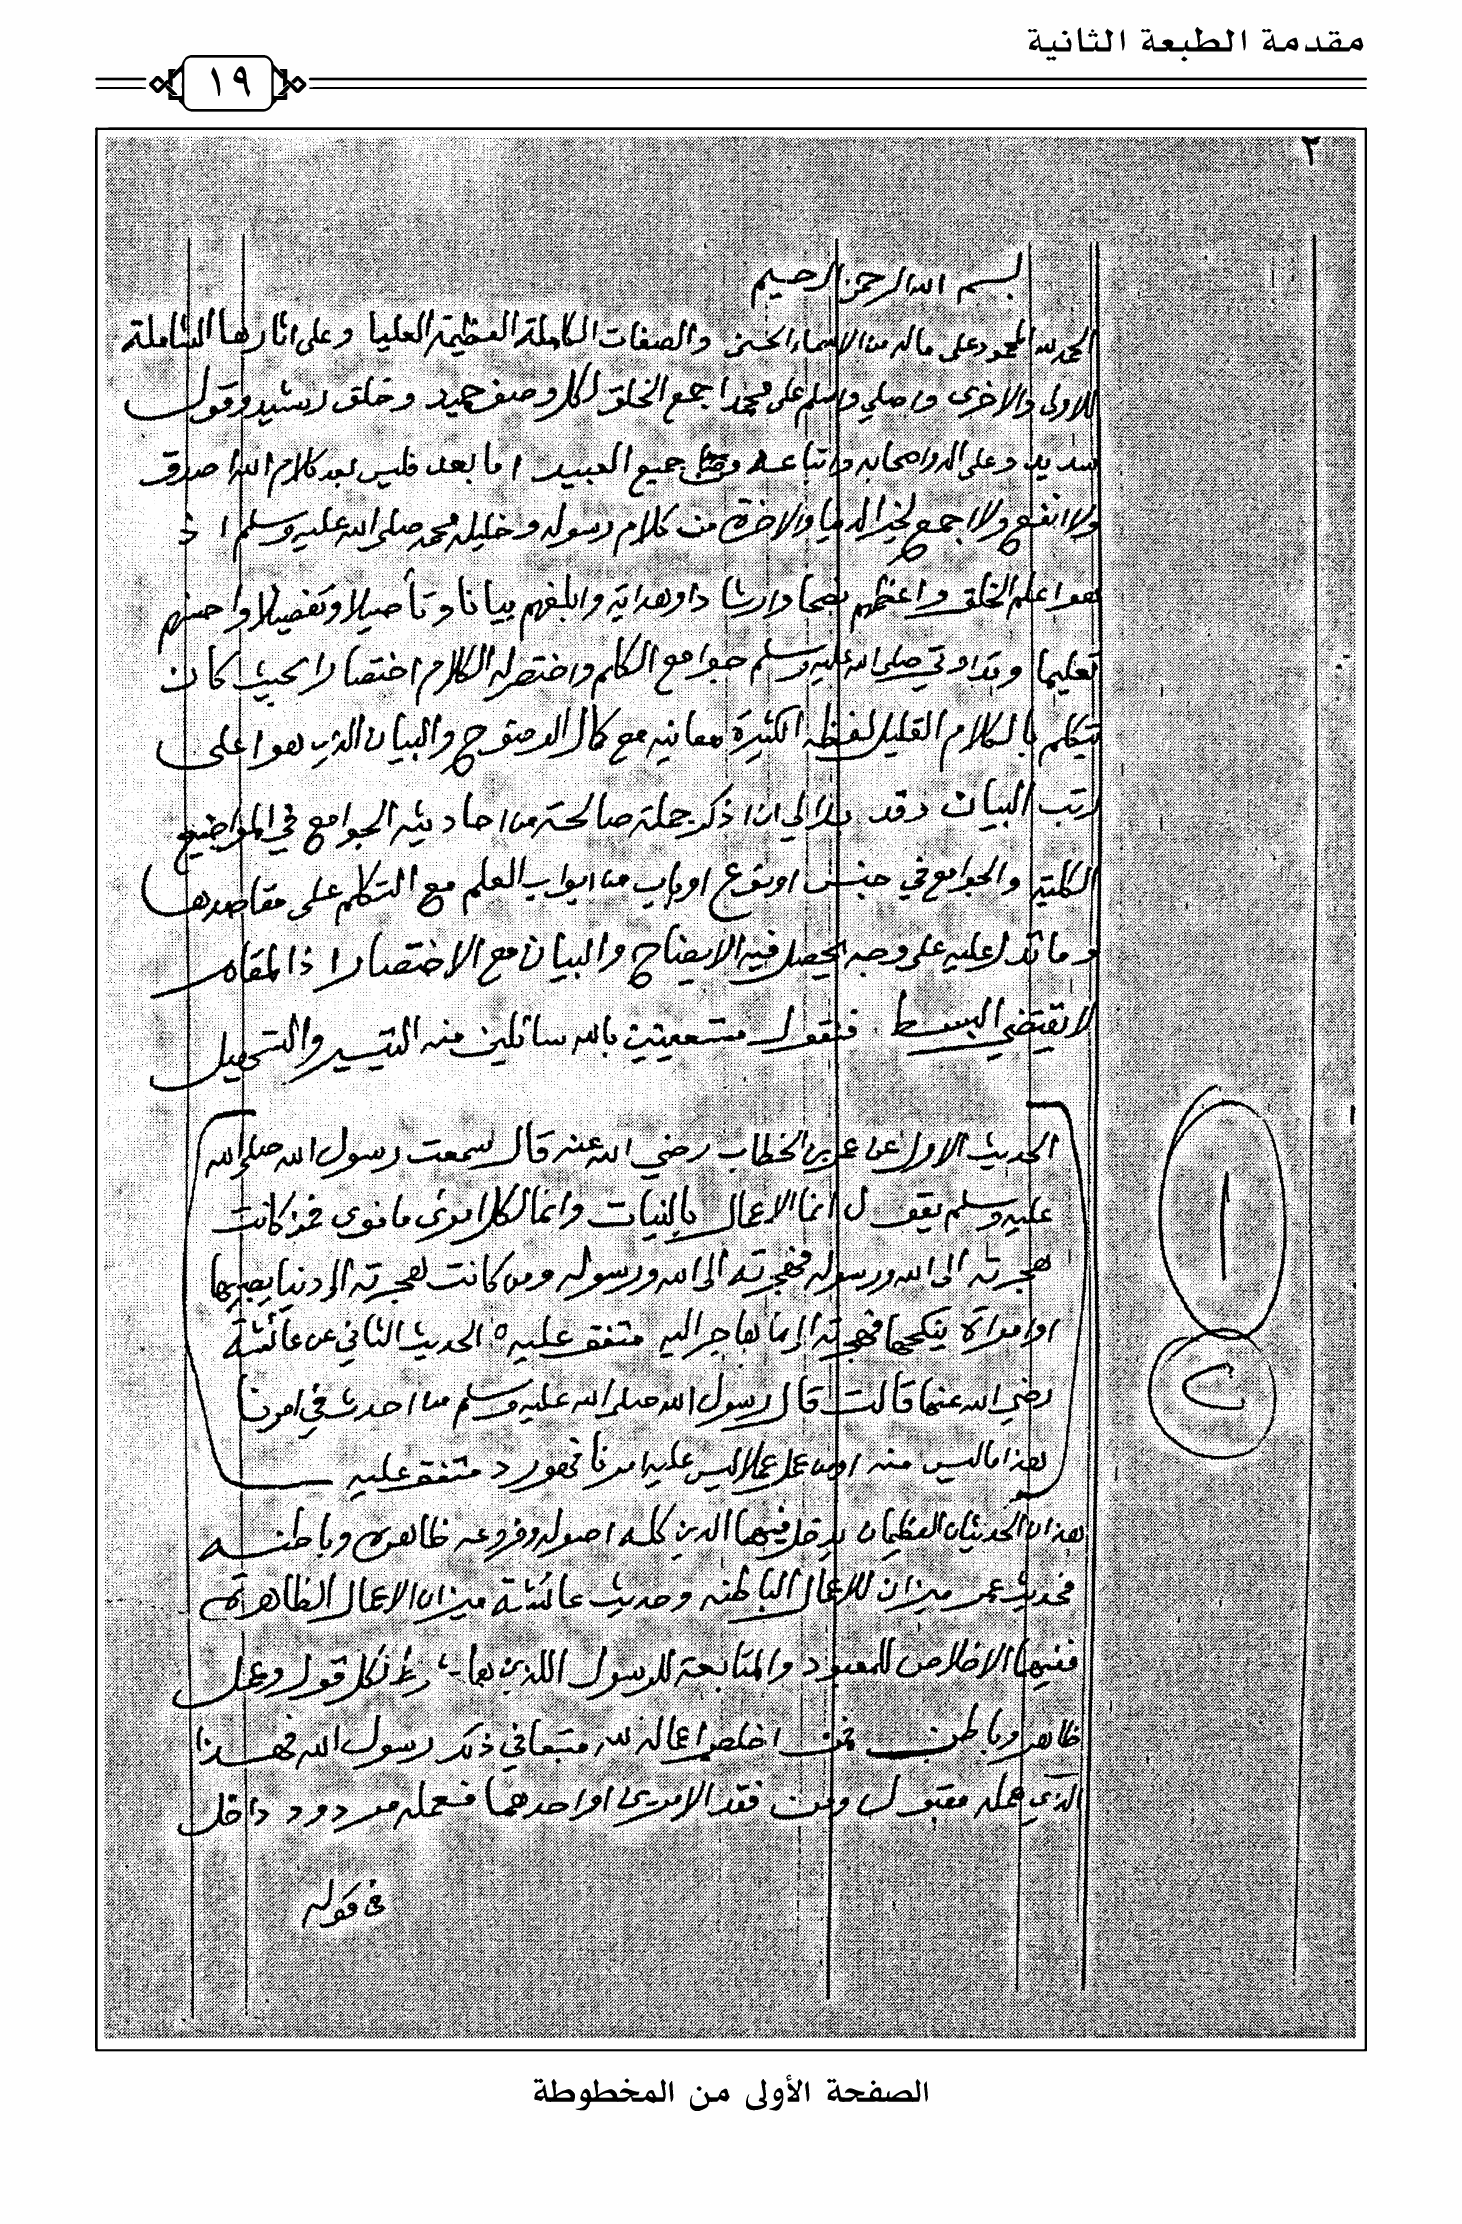 مقدمة الطبعة الثانية
١٩
٢
بسم الله الرحمن الرحيم
الحمد لله المحمود على ماله من الاسماء الحسنى والصفات الكاملة العظيمة العليا وعلى اثارها الشاملة
للاولى والاخرى واصلي واسلم على محمد اجمع الخلق لكل وصف حميد وخلق رشيد وقول
سديد وعلى اله واصحابه واتباعه جميع العبيد اما بعد فليس بعد كلام الله اصدق
ولا انفع ولا اجمع لخير الدنيا والاخرة من كلام رسوله وخليله محمد صلى الله عليه وسلم اذ
هو اعلم الخلق واعظمهم نصحا وارشادا وهداية وابلغهم بيانا وتأصيلا وتفصيلا واحسنهم
تعليما وقد اوتي صلى الله عليه وسلم جوامع الكلم واختصر له الكلام اختصارا بحيث كان
يتكلم بالكلام القليل لفظه الكثيرة معانيه مع كمال الوضوح والبيان الذي هو اعلى
رتب البيان وقد بدا لي ان اذكر جملة صالحة من احاديثه الجوامع في المواضيع
الكلية والجوامع في جنس او نوع او باب من ابواب العلم مع التكلم على مقاصدها
وما تدل عليه على وجه يحصل فيه الايضاح والبيان مع الاختصار اذ المقام
لا يقتضي البسط فنقول مستعينين بالله سائلين منه التيسير والتسهيل
الحديث الاول عن عمر بن الخطاب رضي الله عنه قال سمعت رسول الله صلى الله
عليه وسلم يقول انما الاعمال بالنيات وانما لكل امرئ ما نوى فمن كانت
هجرته الى الله ورسوله فهجرته الى الله ورسوله ومن كانت هجرته الى دنيا يصيبها
او امراة ينكحها فهجرته الى ما هاجر اليه متفق عليه ه الحديث الثاني عن عائشة
رضي الله عنها قالت قال رسول الله صلى الله عليه وسلم من احدث في امرنا
هذا ما ليس منه او من عمل عملا ليس عليه امرنا فهو رد متفق عليه
١
٢
هذان الحديثان العظيمان يدخل فيهما الدين كله اصوله وفروعه ظاهره وباطنه
فحديث عمر ميزان للاعمال الباطنه وحديث عائشة ميزان الاعمال الظاهرة
ففيهما الاخلاص للمعبود والمتابعة للرسول اللذين هما شرط لكل قول وعمل
ظاهر وباطن فمن اخلص اعماله لله متبعا في ذلك رسول الله فهذا
الذي عمله مقبول ومن فقد الامرين او احدهما فعمله مردود داخل
في قوله
الصفحة الأولى من المخطوطة